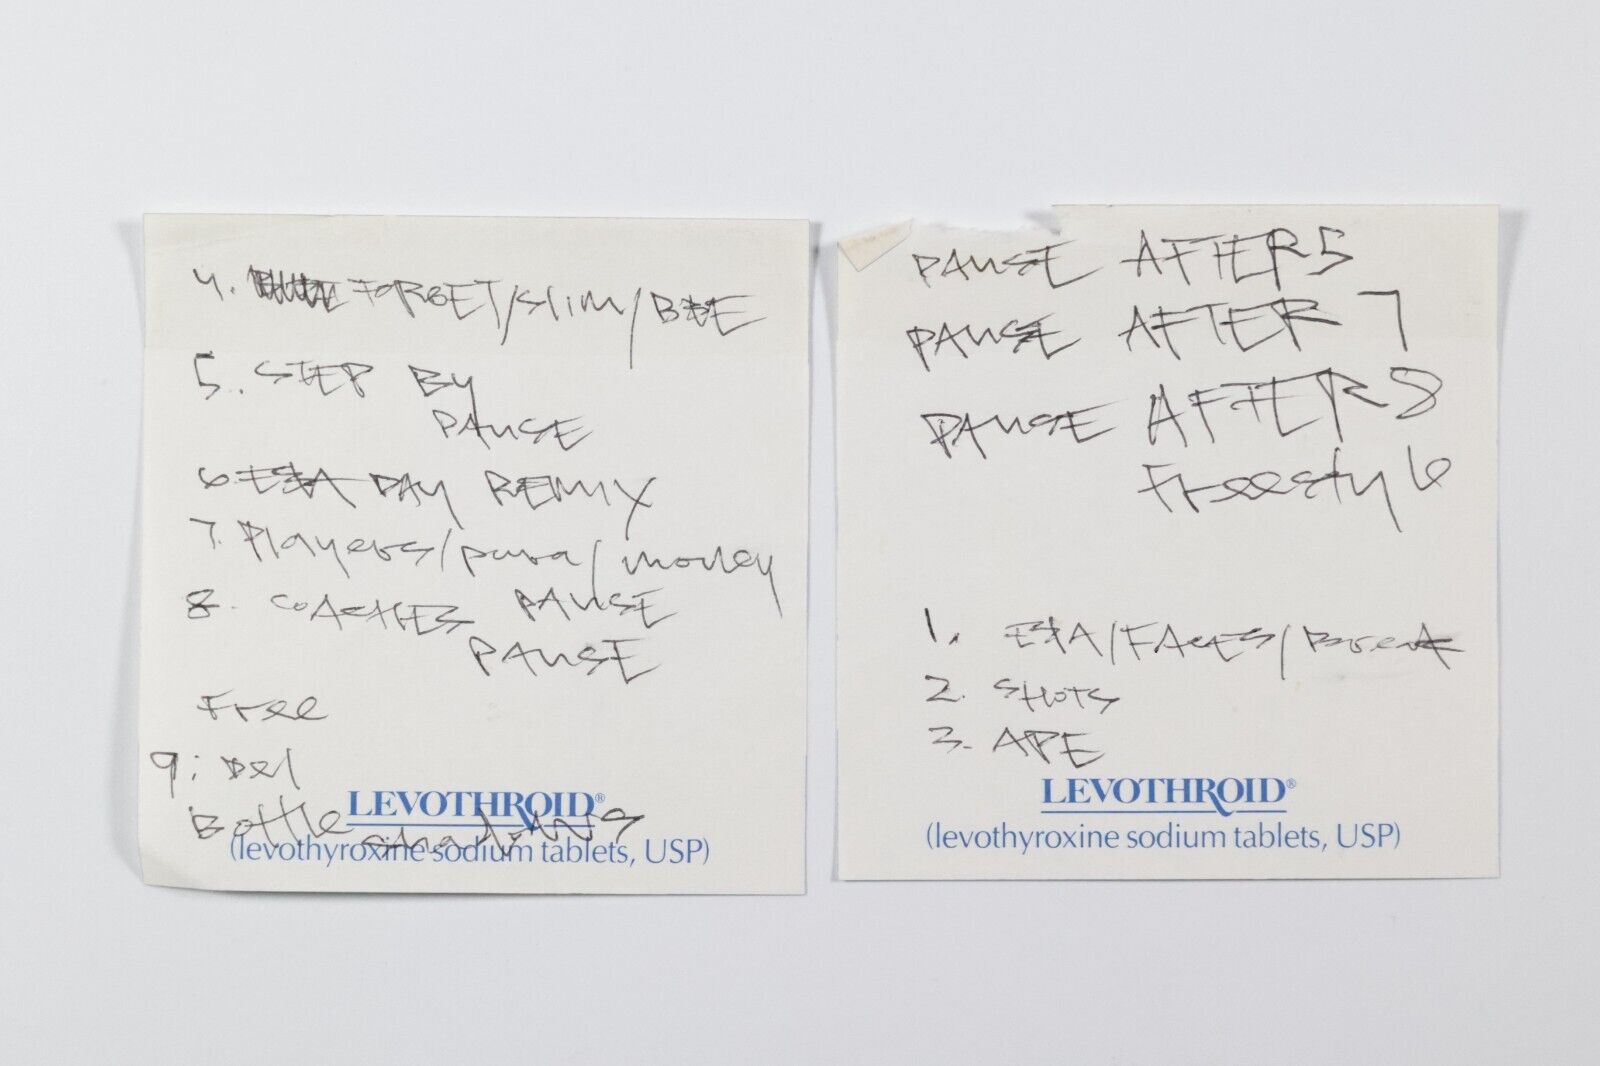 4. FORGET/SLIM/BEE
5. STEP BY
PAUSE
6 E&A DAY REMIX
7. Players/pura/money
8. COACHES PAUSE
PAUSE
Free
9. Del
Bottle
LEVOTHROID®
(levothyroxine sodium tablets, USP)
PAUSE AFTER 5
PAUSE AFTER 7
PAUSE AFTER 8
Freestyle
1. E&A/FACES/Break
2. SHOTS
3. APE
LEVOTHROID®
(levothyroxine sodium tablets, USP)